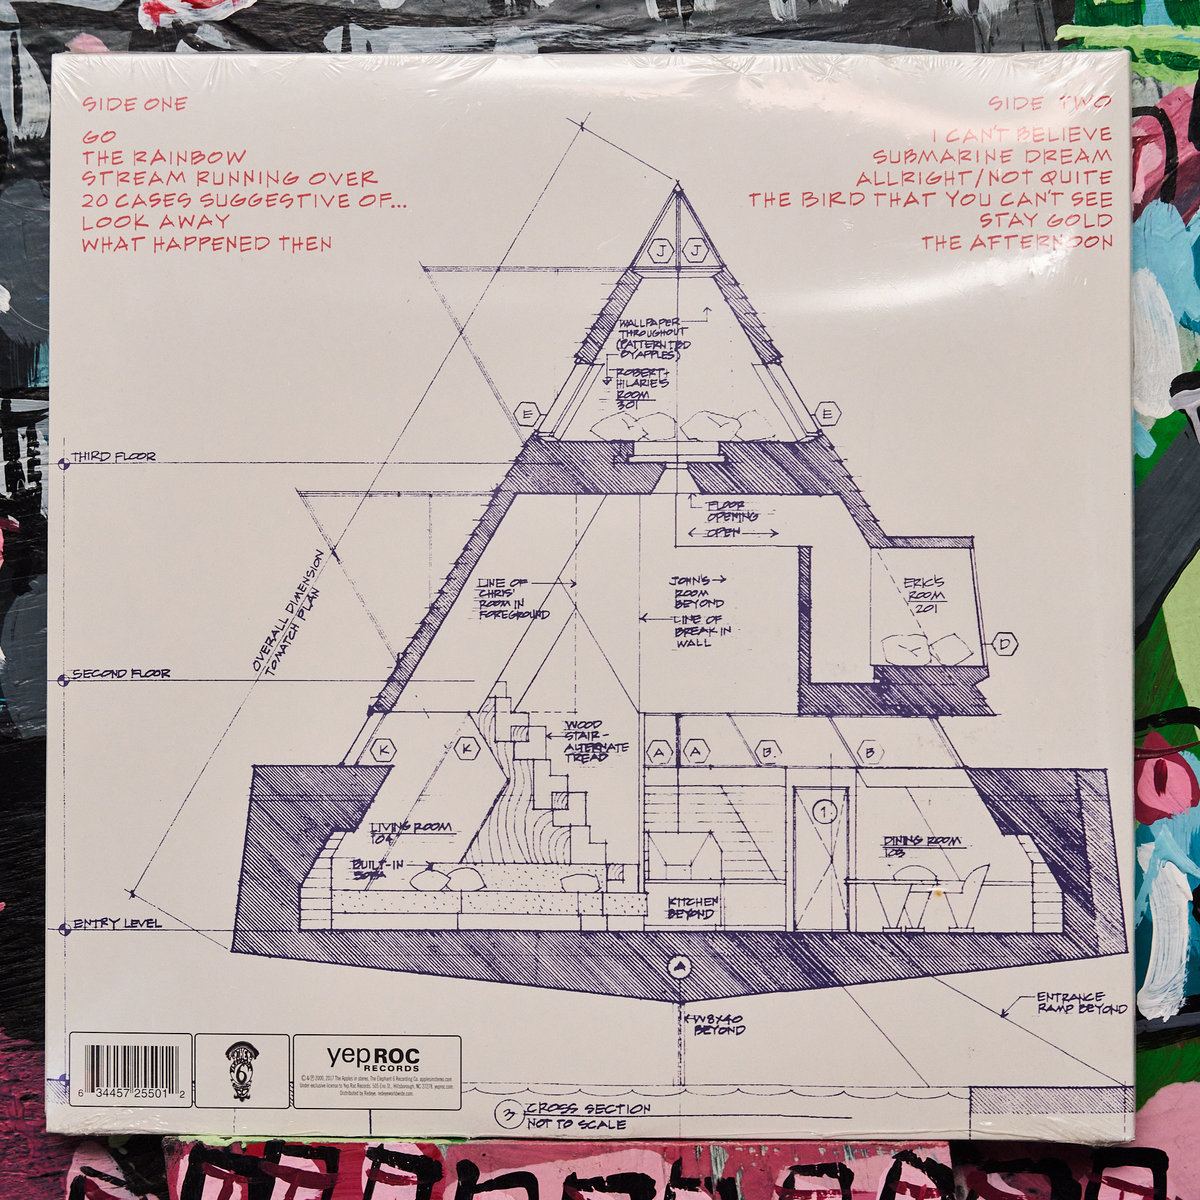 SIDE ONE
GO
THE RAINBOW
STREAM RUNNING OVER
20 CASES SUGGESTIVE OF...
LOOK AWAY
WHAT HAPPENED THEN
SIDE TWO
I CAN'T BELIEVE
SUBMARINE DREAM
ALLRIGHT/NOT QUITE
THE BIRD THAT YOU CAN'T SEE
STAY GOLD
THE AFTERNOON
J J
WALLPAPER
THROUGHOUT
(PATTERN TBD
BY APPLES)
ROBERT +
HILARIE'S
ROOM
301
E E
THIRD FLOOR
FLOOR
OPENING
OPEN
OVERALL DIMENSION
TO MATCH PLAN
LINE OF
CHRIS'
ROOM IN
FOREGROUND
JOHN'S
ROOM
BEYOND
LINE OF
BREAK IN
WALL
ERIC'S
ROOM
201
D
SECOND FLOOR
WOOD
STAIR -
ALTERNATE
TREAD
K K A A B B
1
LIVING ROOM
104
BUILT-IN
SOFA
DINING ROOM
103
KITCHEN
BEYOND
ENTRY LEVEL
A
W8X40
BEYOND
ENTRANCE
RAMP BEYOND
6 34457 25501 2
6
yepROC
RECORDS
© & ℗ 2000, 2017 The Apples in stereo, The Elephant 6 Recording Co. applesinstereo.com
Under exclusive license to Yep Roc Records. 505 Eno St., Hillsborough, NC 27278. yeproc.com
Distributed by Redeye. redeyeworldwide.com
3 CROSS SECTION
NOT TO SCALE